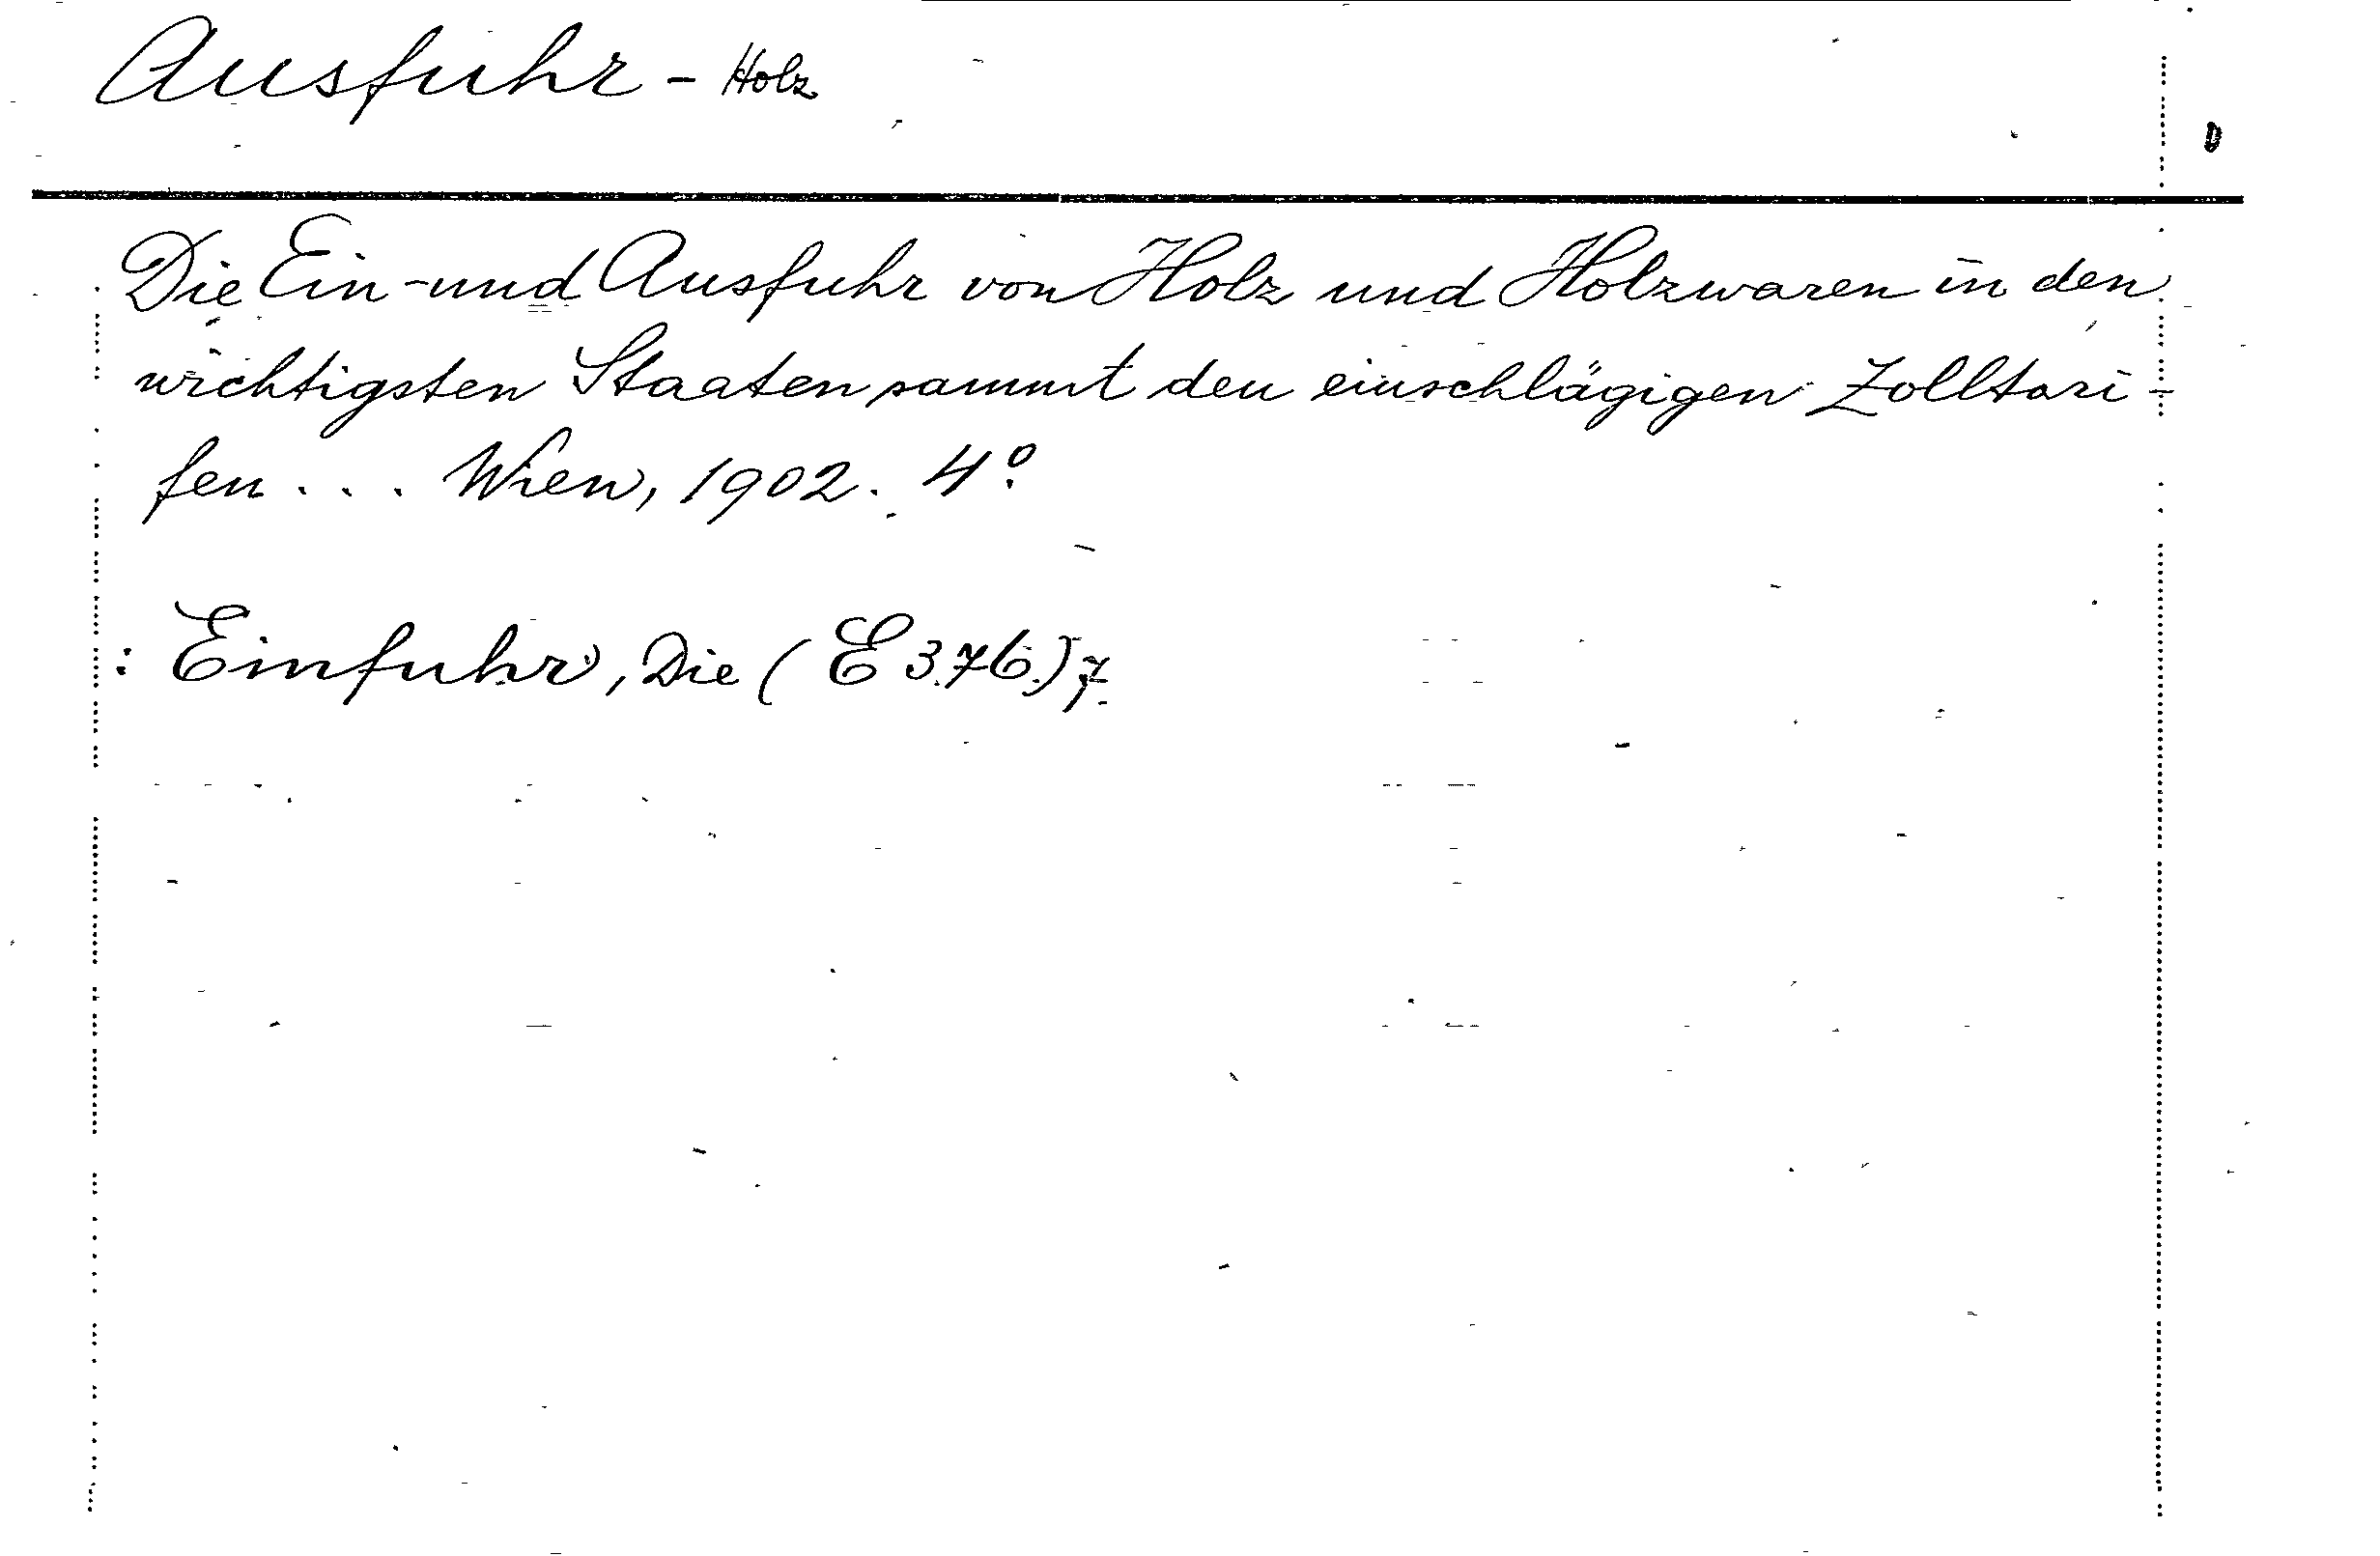 Ausfuhr - Holz
Die Ein- und Ausfuhr von Holz und Holzwaren in den
wichtigsten Staaten sammt den einschlägigen Zolltari-
fen ... Wien, 1902. 4°.
: Einfuhr, Die (E 376.) 7.